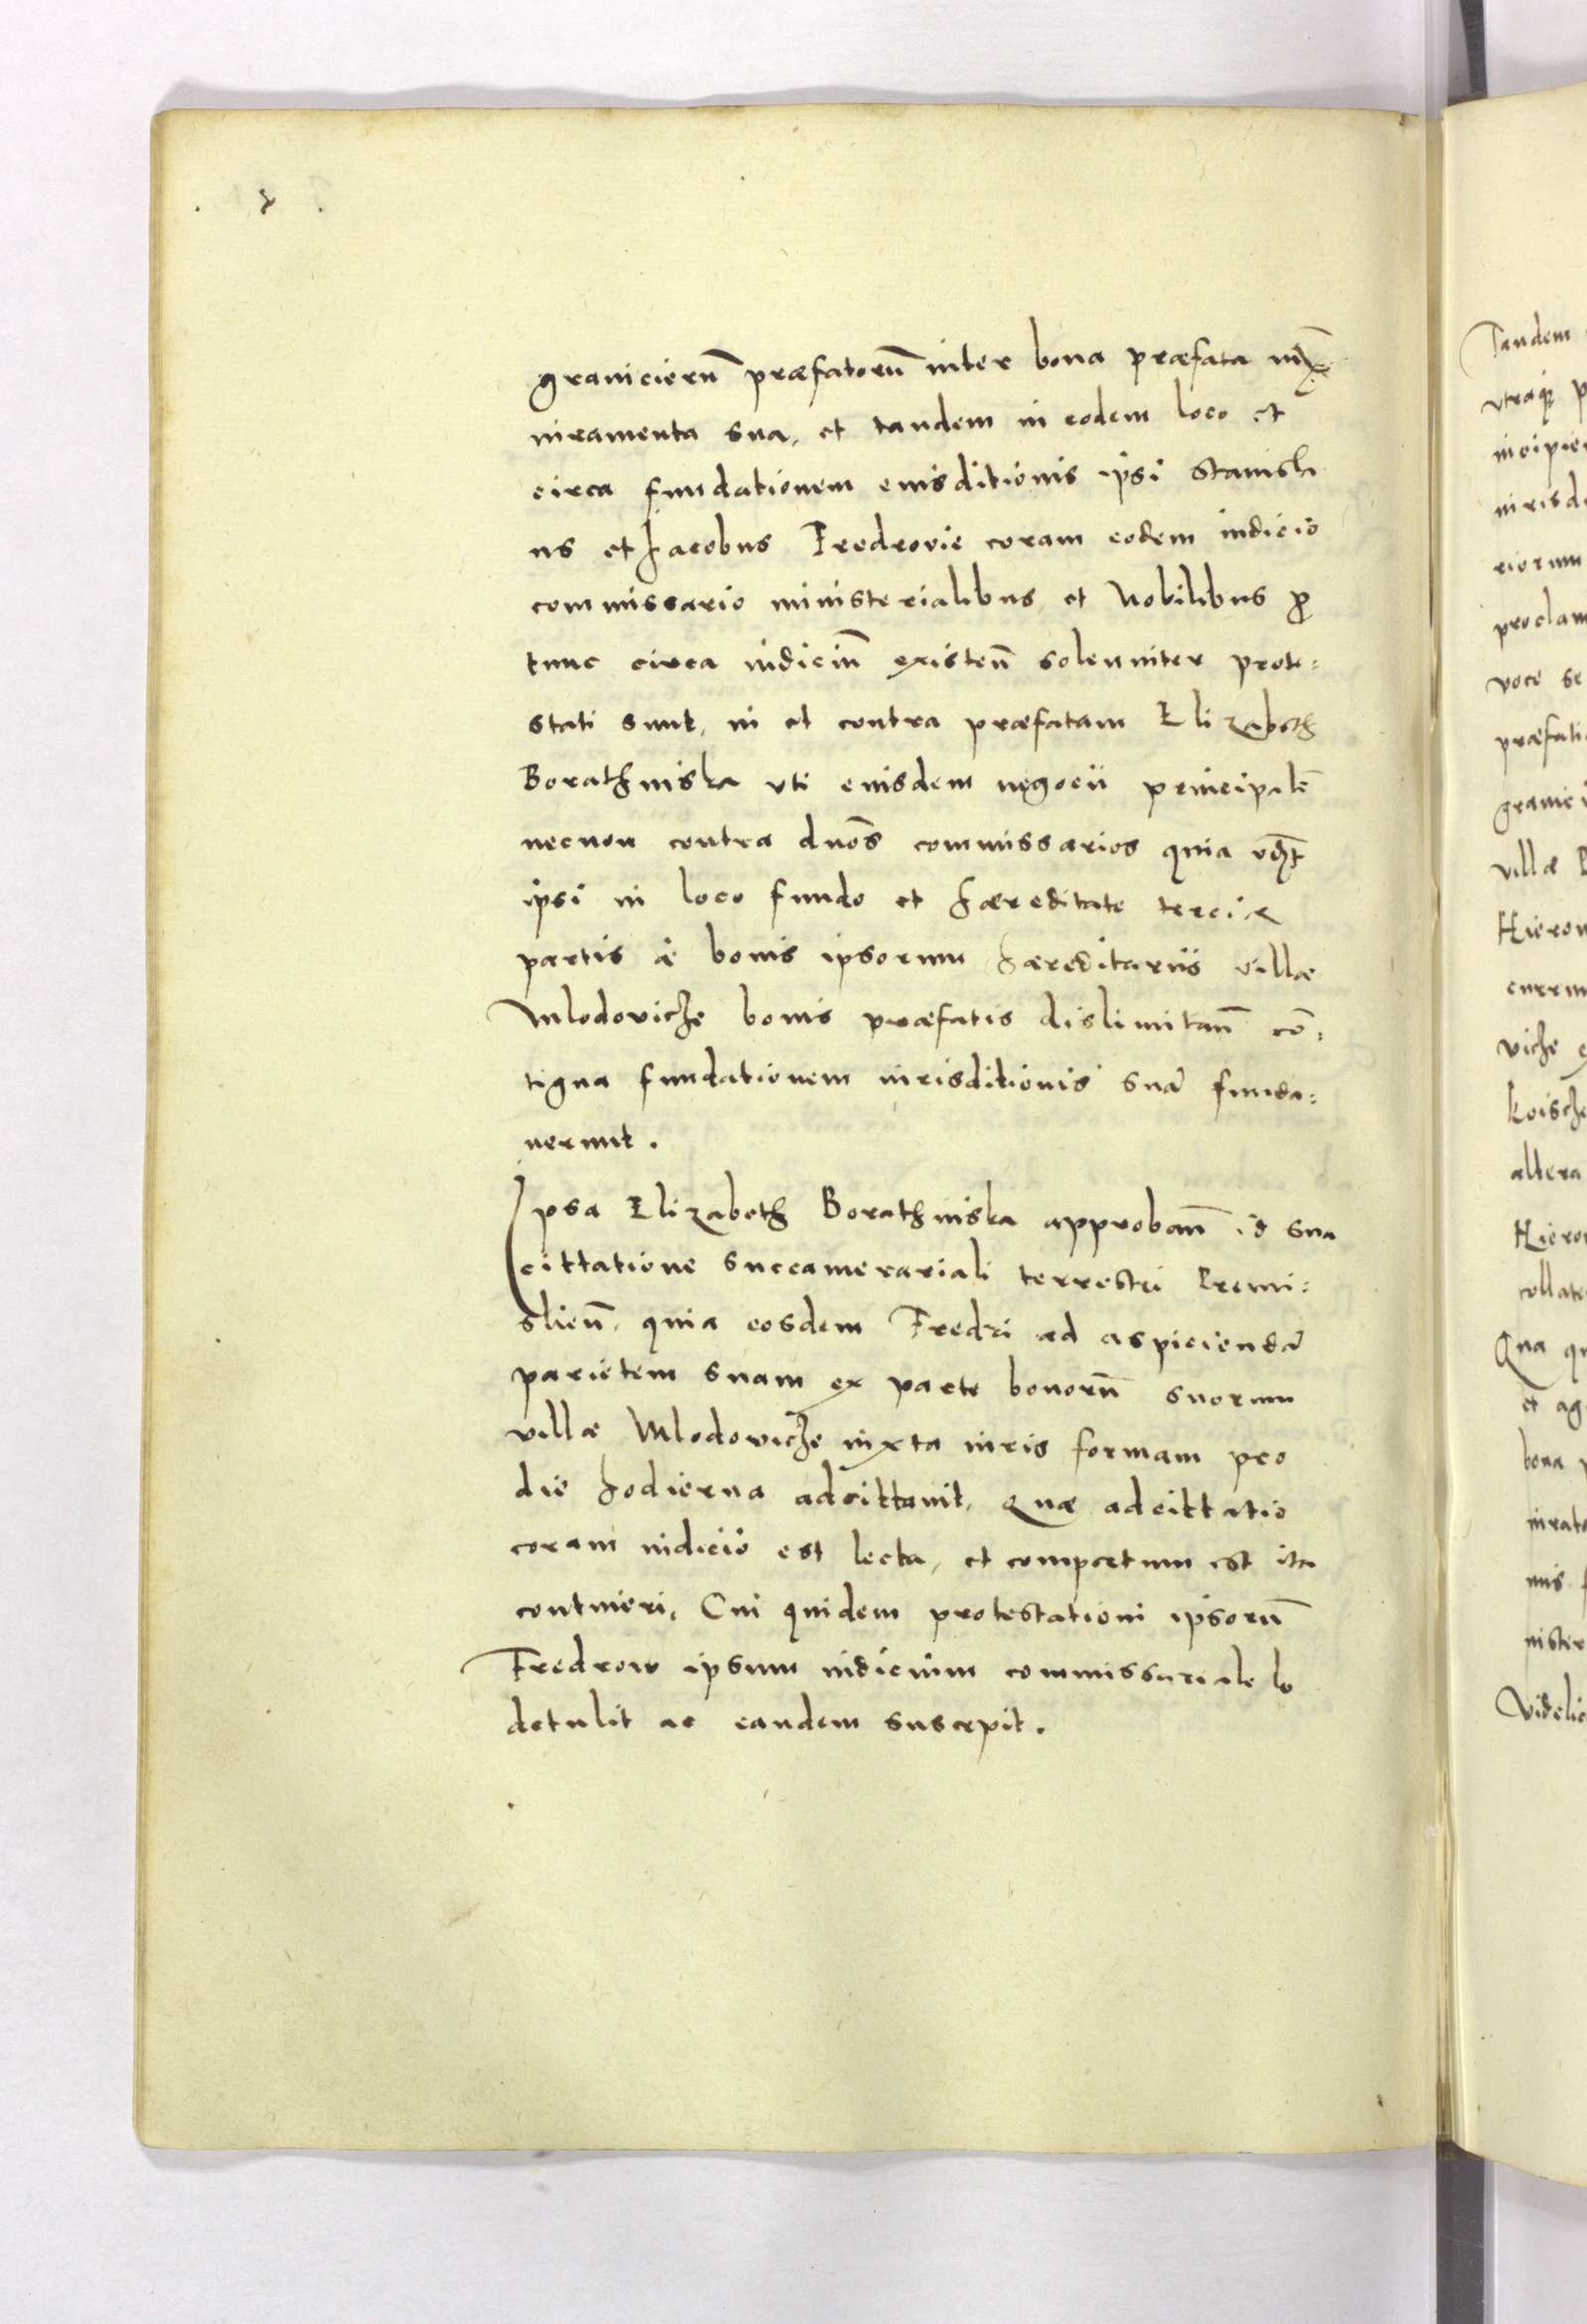 granicierū præfatorū inter bona præfata
iuramenta sua, et tandem in eodem loco et
circa fundationem euisditionis ipsi Stanisla
us et Jacobus Fredrovie coram eodem iudicio
commissario ministerialibus et Nobilibus ꝓ
tunc circa iudiciū existeñ solenniter prote=
stati sunt, in et contra præfatam Elizabeth
Borathniska vti euisdem negocii principalē
necnon contra dnōs commissarios quia
ipsi in loco fundo et hæreditate terciæ
partis a bonis ipsorum hæreditariis villæ
Mlodoviche bonis præfatis dislimitañ cō=
tigua fundationem iurisditionis suā funda=
uerunt.
Ipsa Elizabeth Borathniska approbañ id sua
cittatione succamerariali terrestri Premi=
slieñ, quia eosdem Fredri ad aspiciendā
parietem suam ex parte bonorū suorum
villæ Mlodoviche iuxta iuris formam pro
die hodierna adcittauit, Quæ adcittatio
coram iudicio est lecta, et compertum est ita
contineri, Cui quidem protestationi ipsorū
Fredrow ipsum iudicium commissariale lo
detulit ac eandem suscepit.
Tandem
vtraqꝫ p
incipie
iurisd
riorum
proclam
voce se
præfati
granici
villæ B
Hieron
currun
viche
koische
altera
Hiero
collate
Qua qu
et ag
bona
iurato
nus
nister
Videlic